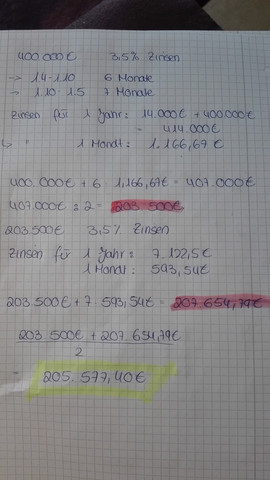 400.000€ 3,5% Zinsen
-> 1.4-1.10 6 Monate
-> 1.10-1.5 7 Monate
Zinsen für 1 Jahr: 14.000€ + 400.000€
= 414.000€
↳ " 1 Monat: 1.166,67€
400.000€ + 6 · 1,166,67€ = 407.000€
407.000€ : 2 = 203.500€
203.500€ 3,5% Zinsen
Zinsen für 1 Jahr: 7.122,5€
1 Monat: 593,54€
203.500€ + 7 · 593,54€ = 207.654,79€
203.500€ + 207.654,79€
2
= 205.577,40€